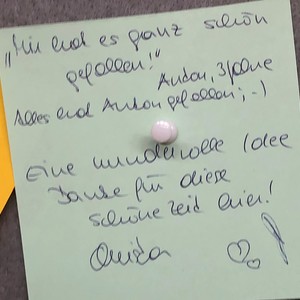 „Mir hat es ganz schön
gefallen!"
Anton, 3 Jahre
Alles hat Anton gefallen ;-)
Eine wundervolle Idee
Danke für diese
schöne Zeit hier!